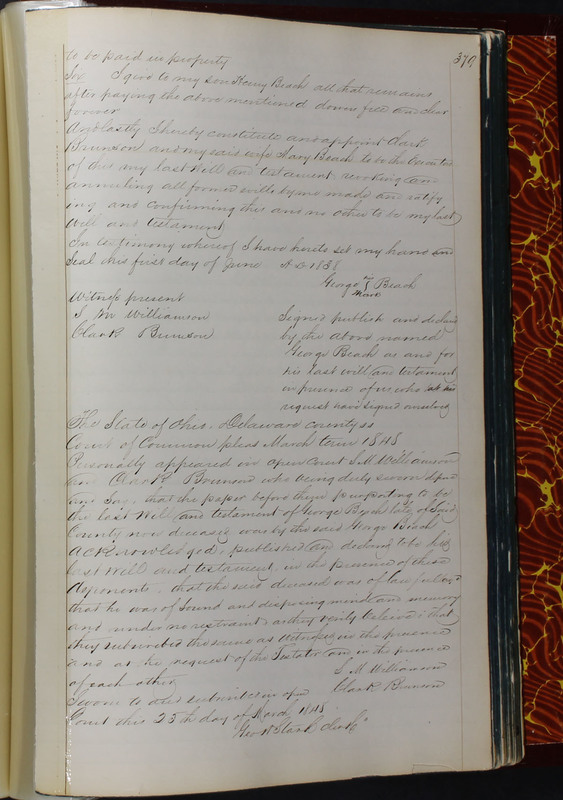 379
to be paid in property
I give to my son Henry Beach all that remains
after paying the above mentioned dowers free and clear
forever
And lastly I hereby constitute and appoint Clark
Brunson and my said wife Mary Beach to be the Executors
of this my last Will and testament revoking and
annuling all former wills by me made and ratify
ing and confirming this and no other to be my last
Will and testament
In testimony whereof I have hereto set my hand and
Seal this first day of June A.D. 1838
George Beach
mark
Witness present
S. M Williamson
Clark Brunson
Signed publish and declared
by the above named
George Beach as and for
his last will and testament
in presence of us who at his
request have signed ourselves
The State of Ohio, Delaware county ss
Court of Common pleas March term 1848
Personally appeared in open Court S. M. Williamson
Clark Brunson who being duly sworn depose
and Say, that the paper before them purporting to be
the last Will and testament of George Beach late of Said
County now deceased was by the said George Beach
Acknowledged, published and declared to be his
last Will and testament in the presence of these
deponents, that the said deceased was of lawful age
that he was of Sound and disposing mind and memory
and under no restraint as they verily beleive; that
they subscribed the same as witnesses in the presence
and at the request of the Testator and in the presence
of each other
S. M. Williamson
Clark Brunson
Sworn to and subscribed in open
Court this 25th day of March 1848
Geo W Stark clerk